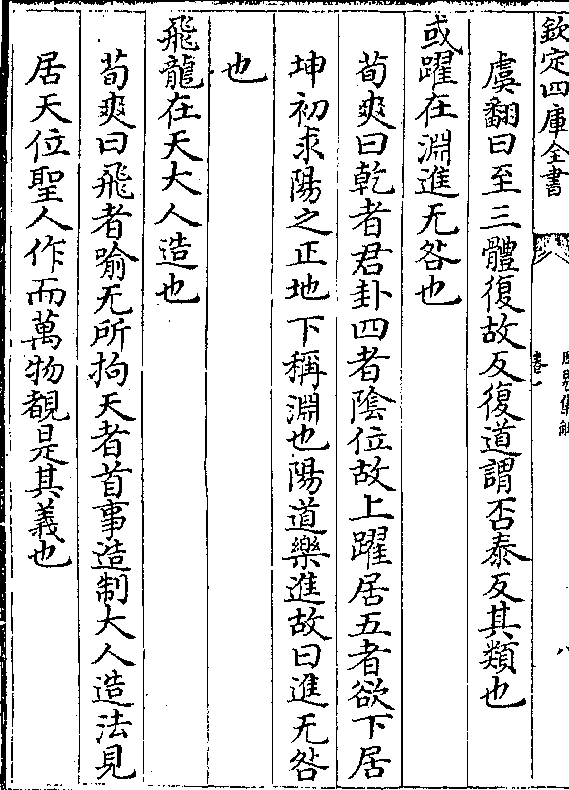 欽定四庫全書
卷一
八
虞翻曰至三體復故反復道謂否泰反其類也
或躍在淵進无咎也
荀爽曰乾者君卦四者陰位故上躍居五者欲下居
坤初求陽之正地下稱淵也陽道樂進故曰進无咎
也
飛龍在天大人造也
荀爽曰飛者喻无所拘天者首事造制大人造法見
居天位聖人作而萬物覩是其義也